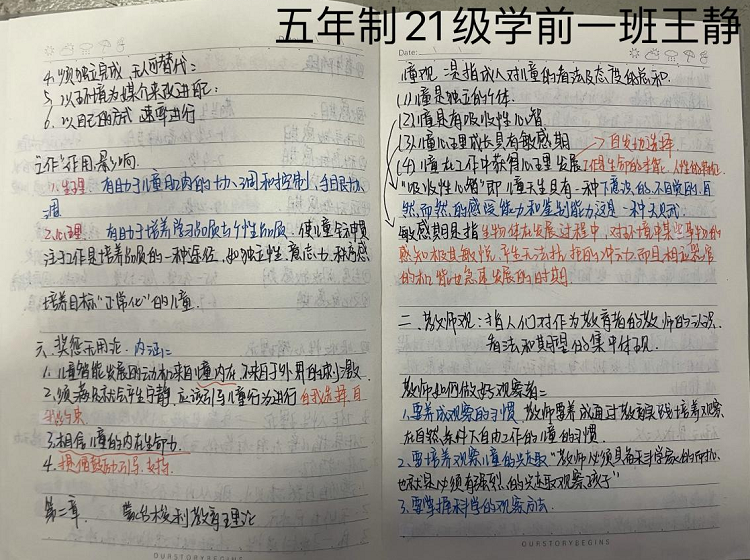 五年制21级学前一班王静
4.须独立完成,无人可替代:
5.以环境为媒介来改进配:
6.以自己的方式、速率进行
工作"作用、影响.
1.生理 有助于儿童肌肉的协调和控制,手眼协
调
2.心理 有助于培养学习品质与个性品质、使儿童专心惯
注于工作是培养品质的一种途径,如独立性、意志力、秩序感
培养目标"正常化"的儿童.
六、奖惩无用论. 内涵:
1.儿童智能发展的动机来自儿童内在,不来自于外界的刺激.
2.须 就会产生宁静,应该引导儿童行为进行自我选择、自
我约束
3.相信儿童的内在生命力.
4.提倡鼓励引导、支持.
第二章. 蒙台梭利教育理论
OURSTORYBEGINS
Date:
儿童观:是指成人对儿童的看法及态度的总和.
(1)儿童是独立的个体.
(2)儿童具有吸收性心智
(3)儿童心理成长具有敏感期
→自发地选择
(4)儿童在工作中获得心理发展 工作是生命的本能、人性的特征
"吸收性心智"即儿童天生具有一种下意识的、不自觉的、自
然而然的感受能力和鉴别能力这是一种天赋.
敏感期是指生物体在发展过程中,对环境中某些事物的
感知极其敏锐,产生无法抗拒的冲动力,而且相应器官
的机能也急速发展的时期.
二、教师观:指人们对作为教育者的教师的认识、
看法和其期望的集中体现.
教师如何做好观察者:
1.要养成观察的习惯,教师要养成通过教具环境培养观察
在自然条件下自由工作的儿童的习惯.
2.要培养观察儿童的兴趣 "教师必须具备未来科学家的
也就是必须有强烈的兴趣取观察孩子"
3.要掌握科学的观察方法.
OURSTORYBEGINS